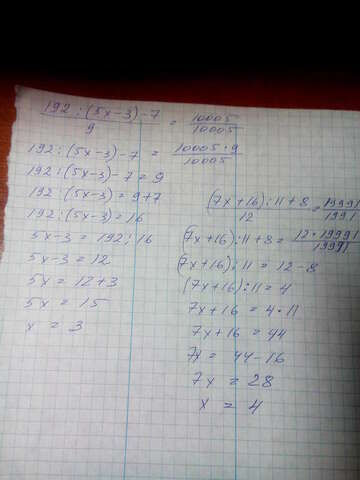 192 : (5x-3) - 7 / 9 = 10005 / 10005
192 : (5x-3) - 7 = 10005 · 9 / 10005
192 : (5x-3) - 7 = 9
192 : (5x-3) = 9+7
192 : (5x-3) = 16
5x-3 = 192 : 16
5x-3 = 12
5x = 12+3
5x = 15
x = 3
(7x+16) : 11 + 8 / 12 = 19991 / 19991
(7x+16) : 11 + 8 = 12 · 19991 / 19991
(7x+16) : 11 = 12 - 8
(7x+16) : 11 = 4
7x+16 = 4 · 11
7x+16 = 44
7x = 44-16
7x = 28
x = 4